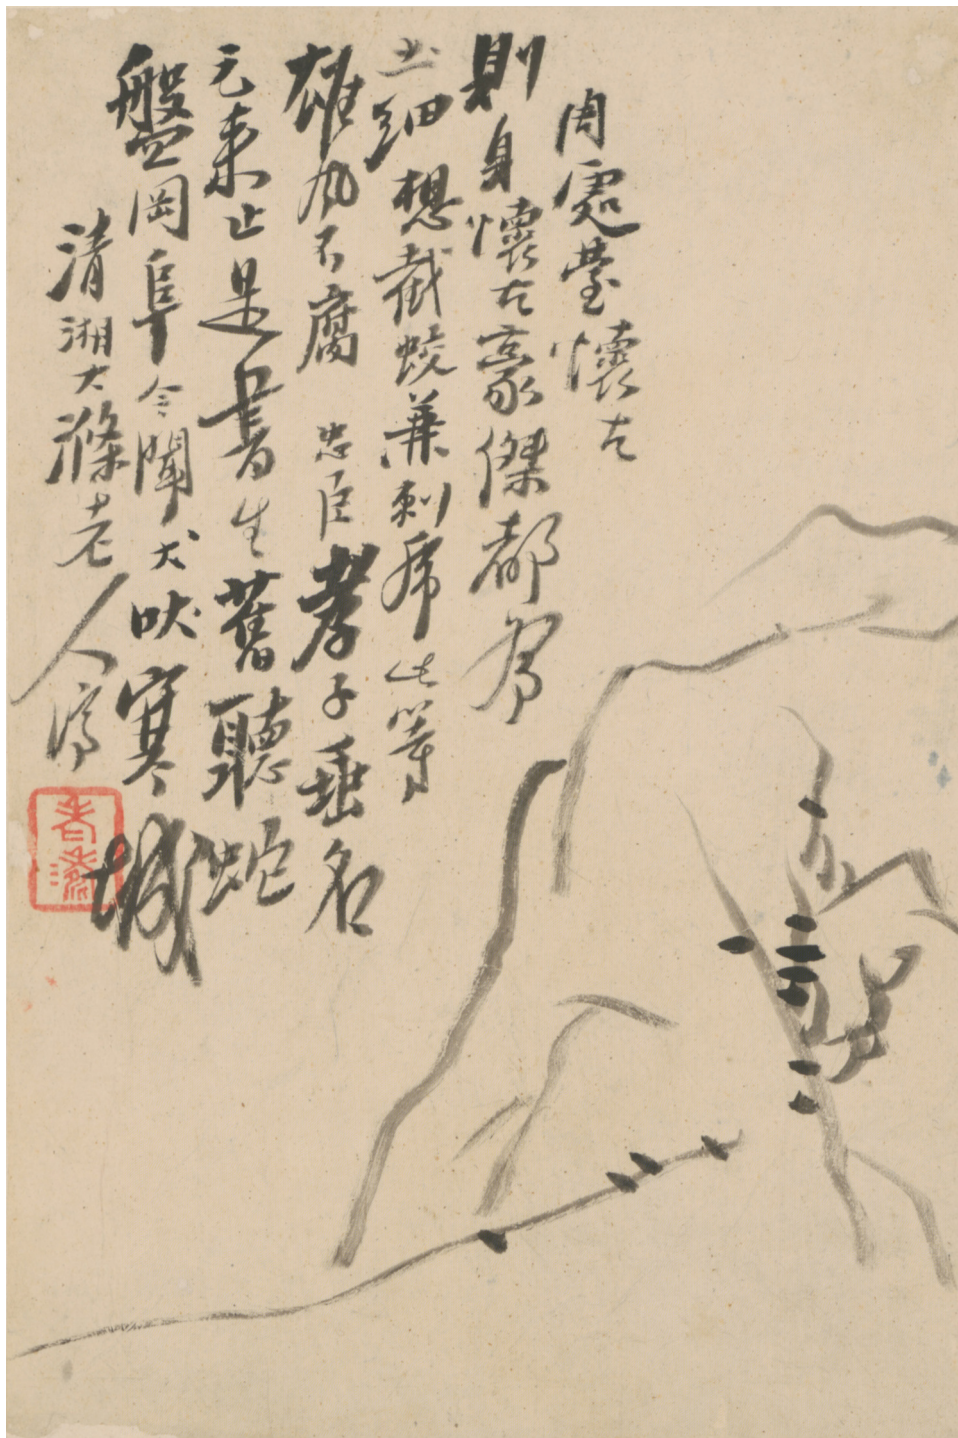 周處臺懷古
則身懷古豪傑都野
上細想截蛟兼刺席此等
雄風不腐忠臣孝子垂名
元來止是書生舊聽蛇
盤岡阜今聞犬吠寒城
清湘大滌老人濟